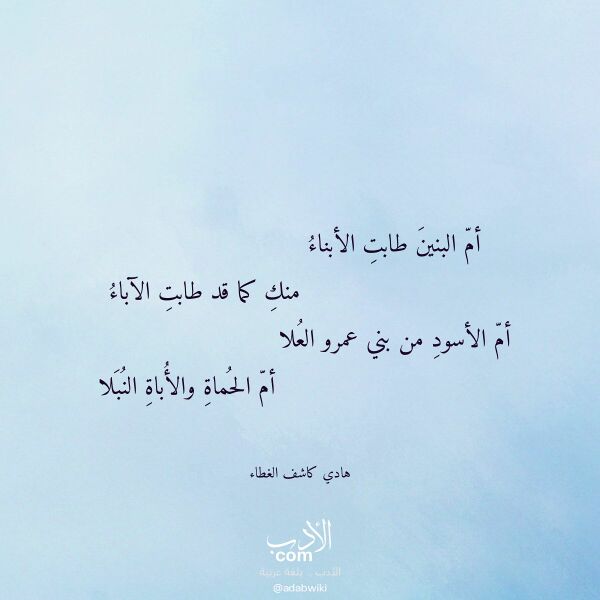 أمّ البنينَ طابتِ الأبناءُ
منكِ كما قد طابتِ الآباءُ
أمّ الأسودِ من بني عمرو العُلا
أمّ الحُماةِ والأُباةِ النُبَلا
هادي كاشف الغطاء
الأدب
com
الأدب .. بلغة عربية
@adabwiki